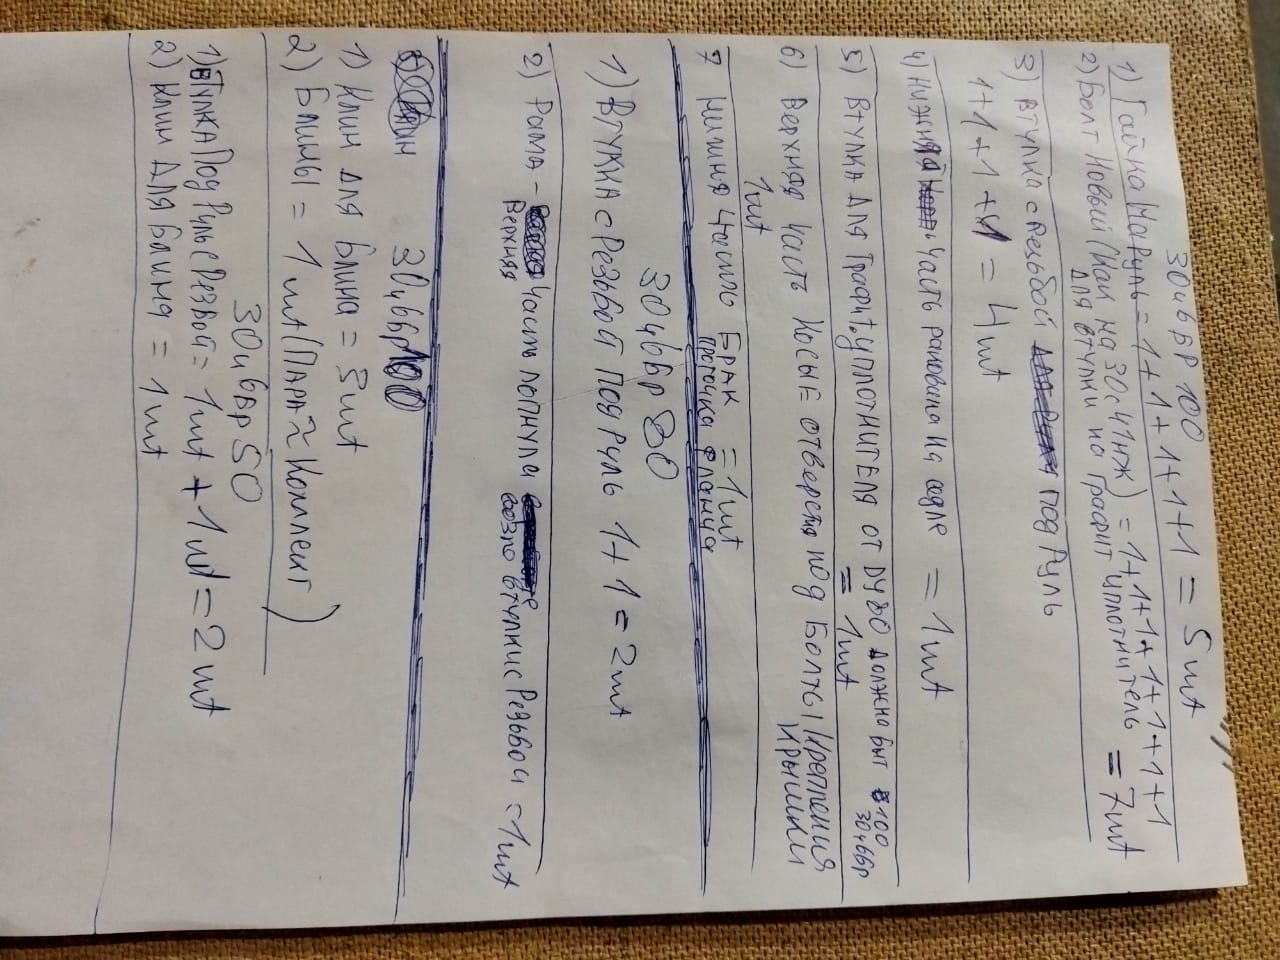 30ч6БР 100
1) Гайка На Руль = 1+1+1+1+1 = 5шт
2) Болт Новый (Как на 30с41нж) = 1+1+1+1+1+1+1
для втулки на Графит уплотнитель = 7шт
3) Втулка с Резьбой под Руль
1+1+1+1 = 4шт
4) Нижняя часть раковина на седле = 1шт
5) Втулка для Графит.уплотнителя от DУ80 должна быт 100
30ч6БР
= 1шт
6) Верхняя часть Косые отверстя под Болты Крепления
Крышки
1шт
7 Нижня часть БРАК = 1шт
проточка фланца
30ч6Бр 80
1) Втукка с Резьбой под руль 1+1=2шт
2) Рама - часть лопнула
Верхняя возло втулкис Резьбой = 1шт
Клин 30ч6Бр100
1) Клин для Блина = 3шт
2) Блины = 1шт (Пара ≈ Комплект)
30ч6Бр 50
1) Втулка Под Руль с Резбой = 1шт + 1шт = 2шт
2) Клин для Блина = 1шт